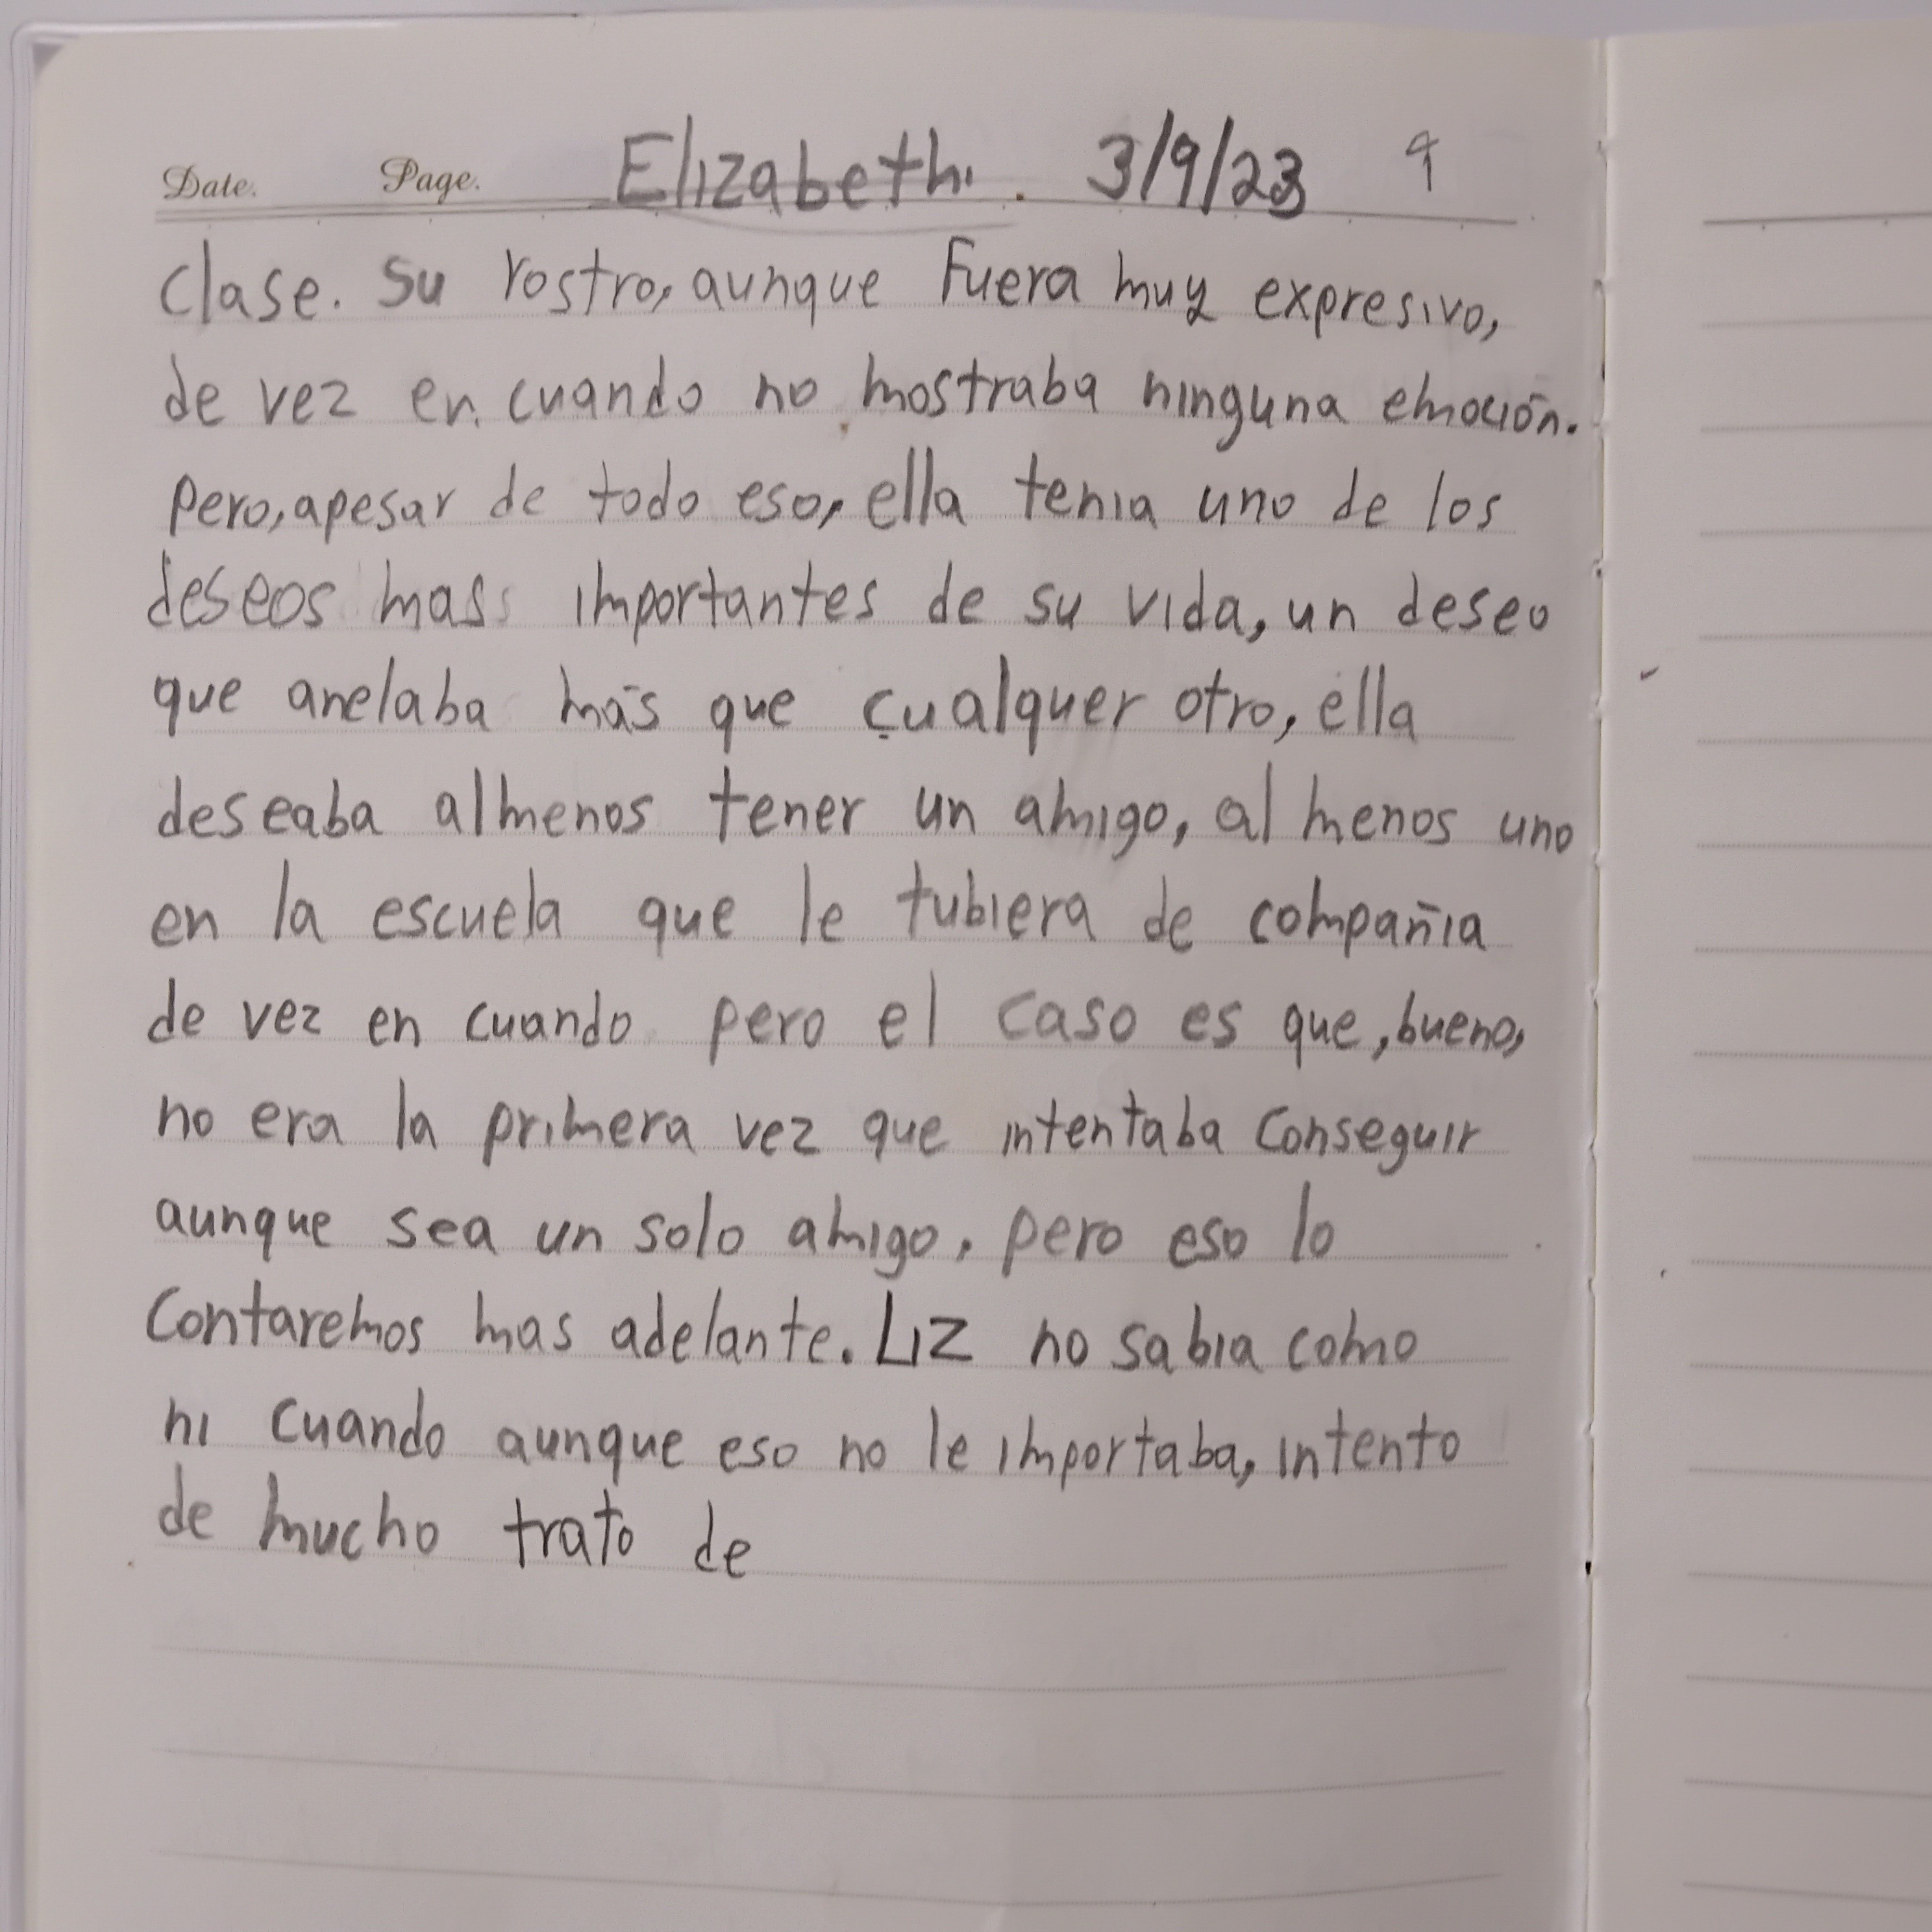 Date. Page. Elizabeth. 3/9/23 9
clase. su rostro, aunque Fuera muy expresivo,
de vez en cuando no mostraba ninguna emoción.
pero, apesar de todo eso, ella tenia uno de los
deseos mas importantes de su vida, un deseo
que anelaba más que cualquer otro, ella
deseaba almenos tener un amigo, al menos uno
en la escuela que le tubiera de compañia
de vez en cuando pero el caso es que, bueno,
no era la primera vez que intentaba conseguir
aunque sea un solo amigo, pero eso lo
contaremos mas adelante. Liz no sabia como
ni cuando aunque eso no le importaba, intento
de mucho trato de